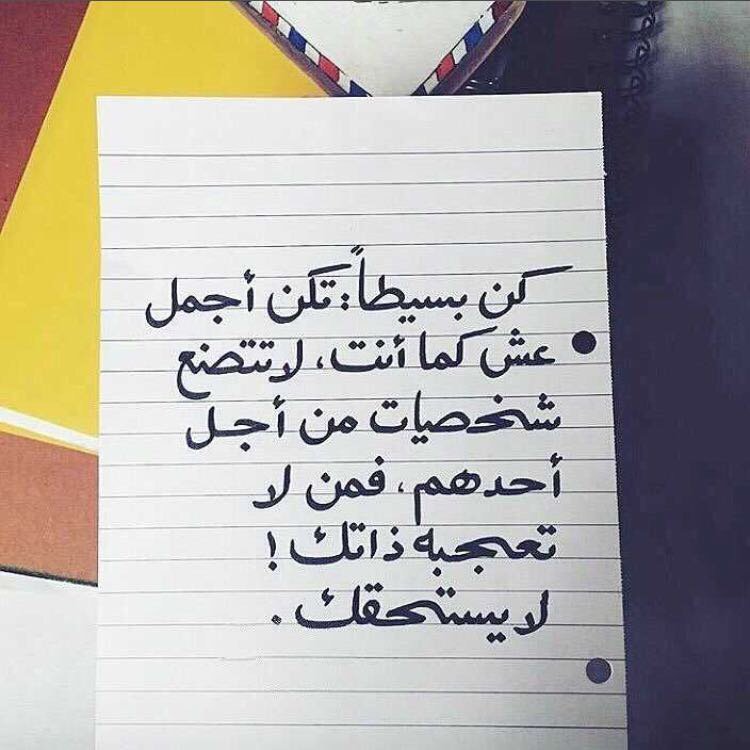 كن بسيطاً؛ تكن أجمل
عش كما أنت، لا تتصنع
شخصيات من أجل
أحدهم، فمن لا
تعجبه ذاتك !
لا يستحقك .